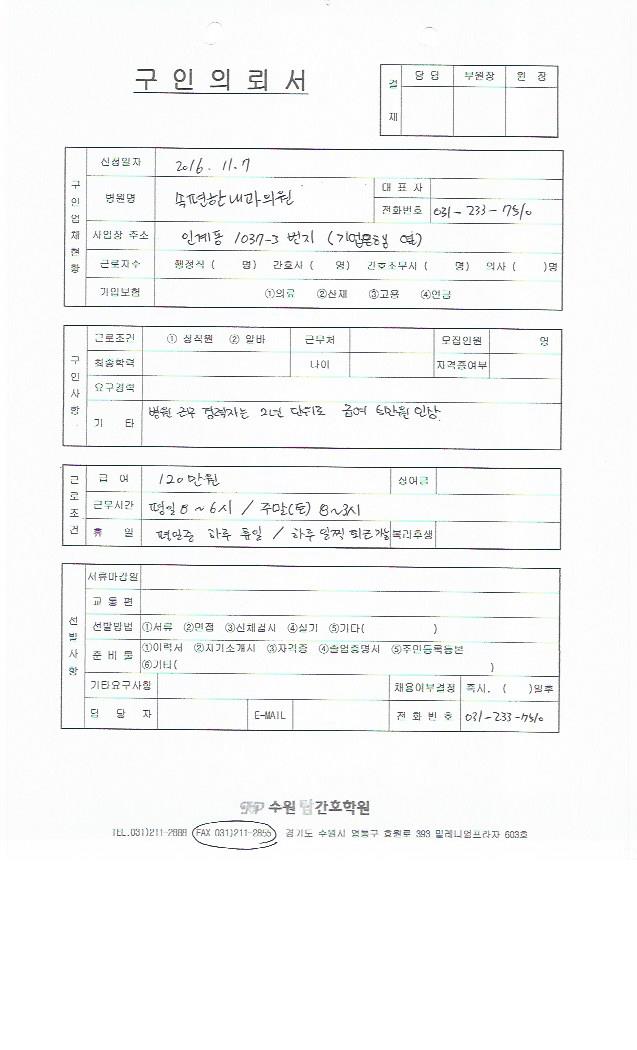 구 인 의 뢰 서
결 재 담 당 부원장 원 장
구인업체현황
신청일자 2016. 11. 7
병원명 속편한내과의원 대 표 자
전화번호 031-233-7510
사업장 주소 인계동 1037-3 번지 (기업은행 옆)
근로자수 행정직 ( 명) 간호사 ( 명) 간호조무사 ( 명) 의사 ( )명
가입보험 ①의료 ②산재 ③고용 ④연금
구인사항
근로조건 ① 정직원 ② 알바 근무처 모집인원 명
최종학력 나이 자격증여부
요구경력
기 타 병원 근무 경력자는 2년 단위로 급여 5만원 인상.
근로조건
급 여 120만원 상여금
근무시간 평일 8~6시 / 주말(토) 8~3시
휴 일 평일중 하루 휴일 / 하루 일찍 퇴근가능 복리후생
선발사항
서류마감일
교 통 편
선발방법 ①서류 ②면접 ③신체검사 ④실기 ⑤기타( )
준 비 물 ①이력서 ②자기소개서 ③자격증 ④졸업증명서 ⑤주민등록등본
⑥기타( )
기타요구사항 채용여부결정 즉시, ( )일후
담 당 자 E-MAIL 전 화 번 호 031-233-7510
수원탑간호학원
TEL.031)211-2888 FAX 031)211-2855 경기도 수원시 영통구 효원로 393 밀레니엄프라자 603호